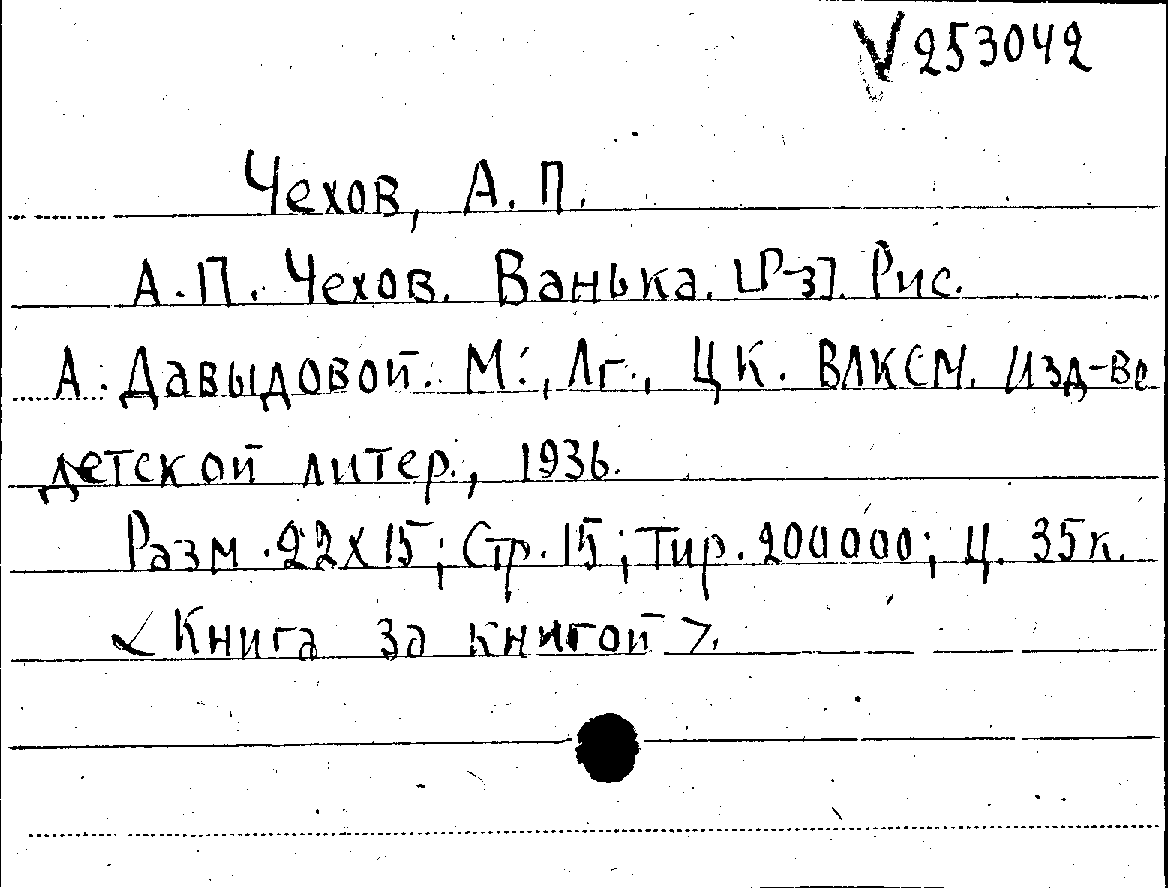 V253042
Чехов, А. П.
А. П. Чехов. Ванька. [Р-з]. Рис.
А. Давыдовой. М., Лг., ЦК. ВЛКСМ. Изд-во
детской литер., 1936.
Разм. 22х15; Стр. 15; Тир. 200000; Ц. 35к.
<Книга за книгой>.